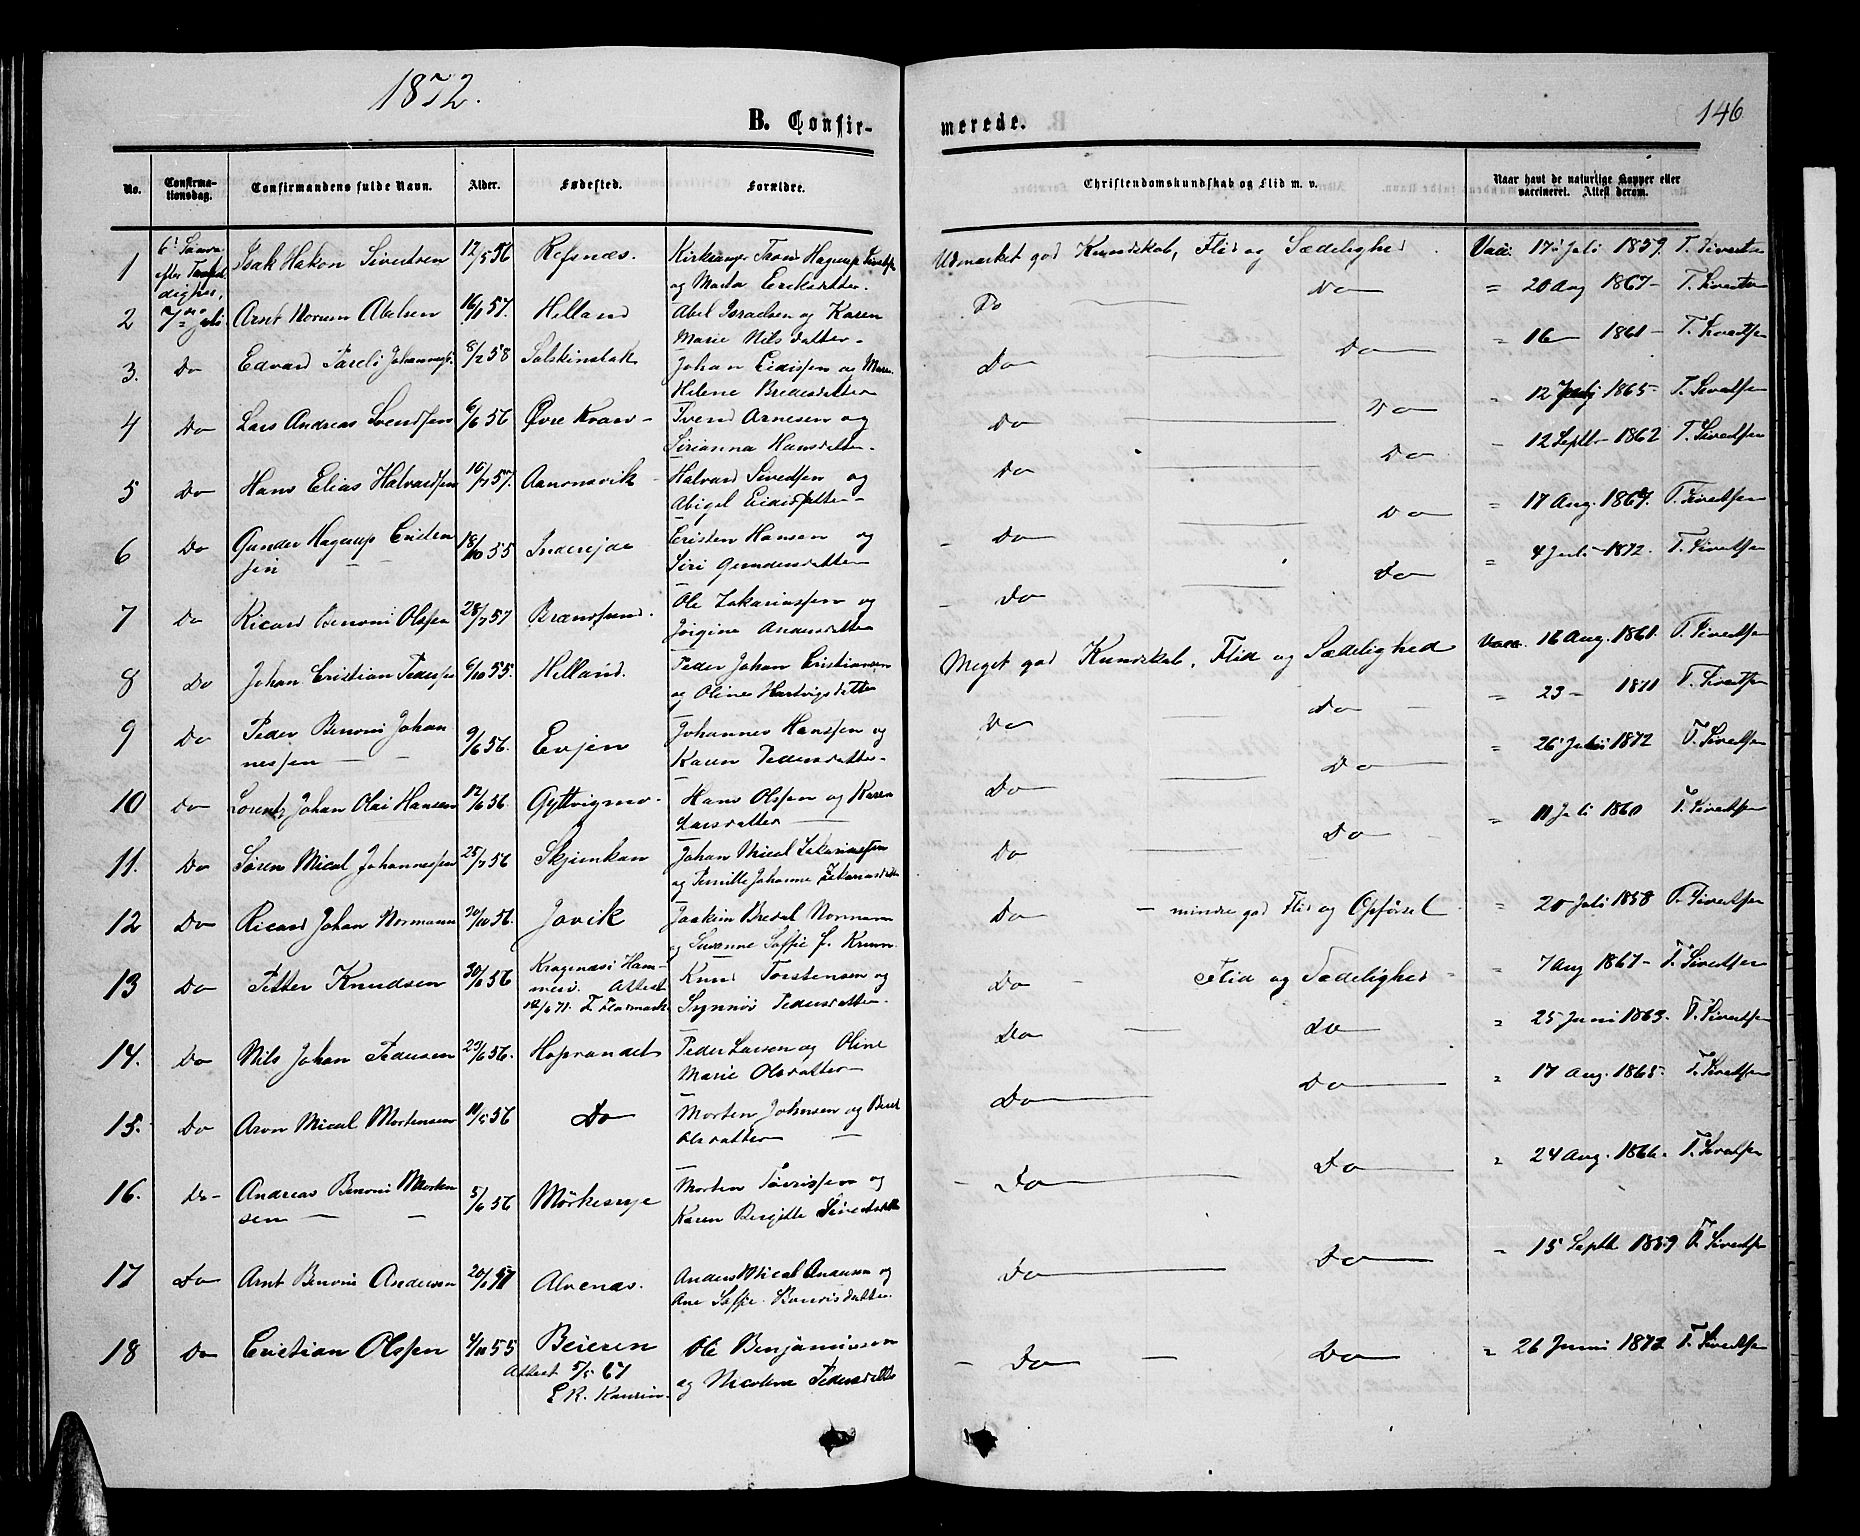 1872.
B. Confir-
merede.
146
No.
Confirma-
tionsdag.
Confirmandens fulde Navn.
Alder.
Fødested.
Forældre.
Christendomskundskab og Flid m. v.
Naar havt de naturlige Kopper eller
vaccineret. Attest derom.
1 efter Isak Hakon Sivertsen 12/5 56 Refsnæs. Kirkesanger Hagerup
og Marta Eriksdatter. Udmærket god Kundskab, Flid og Sædelighed Vac. 17 Juli 1859 T. Sivertsen
2 7 Juli Arnt Abelsen 57. Helland Abel Israelsen og Karen
Marie Nilsdatter - Do Do " 20 Aug 1867 - T. Sivertsen
3. Do Edvard Johannes 8/2 58 Solskinsbak Johan Eidissen og Maren
Helene Bredesdatter Do Do " 16 - 1861 - T. Sivertsen
4 Do Lars Andreas Svendsen 6/6 56 Øvre Kvarv - Svend Arnesen og
Sirianna Hansdatter. Do Do " 12 1865 - T. Sivertsen
5 Do Hans Elias Halvardsen 57. Aanonsvik - Halvard Sivertsen og
Abigel Eidisdatter - Do Do " 12 Septb - 1862 T. Sivertsen
6 Do Gunder Hagerup Cristen
sen 18/10 55 Cristen Hansen og
Siri Gundersdatter - Do Do " 17 Aug. 1867. T. Sivertsen
7 Do Ricard Benoni Olssen 28/7 57 Brandsund. Ole Zakariassen og
Jørgine Andersdatter - Do Do " 4 Juli - 1872. T. Sivertsen
8 Do Johan Cristian Pedersen 6/10 55. Helland. Peder Johan Cristiansen
og Oline Hartvigsdatter Meget god Kundskab, Flid og Sædelighed Vacc. 16 Aug. 1861. T. Sivertsen
9 Do Peder Benoni Johan
nessen 9/6 56. Evjen Johannes Hanssen og
Karen Pedersdatter - Do Do " 23 - 1871 T. Sivertsen
10 Do Lorents Johan Olai Hansen 12/6 56. Gyltvigmo - Hans Olssen og Karen
Larsdatter Do Do " 26 Juli 1872 T. Sivertsen
11. Do Søren Mical Johannessen 25/7 56 Johan Mical Zakariassen
og Pernille Johanne Zakariasdatter Do Do " 11 Juli 1860 T. Sivertsen
12 Do Ricard Johan Normann 56. Jovik Joakim Bredal Normann
og Susanne Soffie f. Do - mindre god Flid og Opførsel " 20 Juli 1858 T. Sivertsen
13 Do Petter Knudsen 56 Kragenæsi Ham-
mer. Attest
12/6 71. Knud Torstensen og
Synnøv Pedersdatter. Do - Flid og Sædelighed " 7 Aug 1867 - T. Sivertsen
14. Do Nils Johan Pedersen 56. Hoprandet Peder Larsen og Oline
Marie Olsdatter - Do Do " 25 Juni 1863. T. Sivertsen
15. Do Aron Mical Mortensen 11/5 56 Do Morten Johnsen og Beret
Olsdatter - Do Do " 17 Aug. 1865. T. Sivertsen
16. Do - Andreas Benoni Morten
sen 5/6 56 Morten og
Karen Birgitte Sivertsdatter - Do Do " 24 Aug. 1866. T. Sivertsen
17 Do Arnt Benoni Andersen Alvenæs. Anders Mical Andersen og
Ane Soffie Do Do " 15 Septb 1859 T. Sivertsen
18 Do Cristian Olssen 4/11 55 Beieren
Attest 5/5 67
Ole Benjaminsen
og Nicoline Pedersdatter - Do - Do " 26 Juni 1872 T. Sivertsen